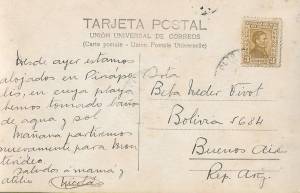 TARJETA POSTAL
UNIÓN UNIVERSAL DE CORREOS
(Carte postale - Union Postale Universelle)
Desde ayer estamos
alojados en Piriápo-
lis, en cuya playa
hemos tomado baños
de agua y sol
Mañana partimos
nuevamente para Mon
tevideo
Saludos a mamá y
Atilio
Srta
Beba Neder Pivot
Bolivia 5684
Buenos Aires
Rep. Arg.